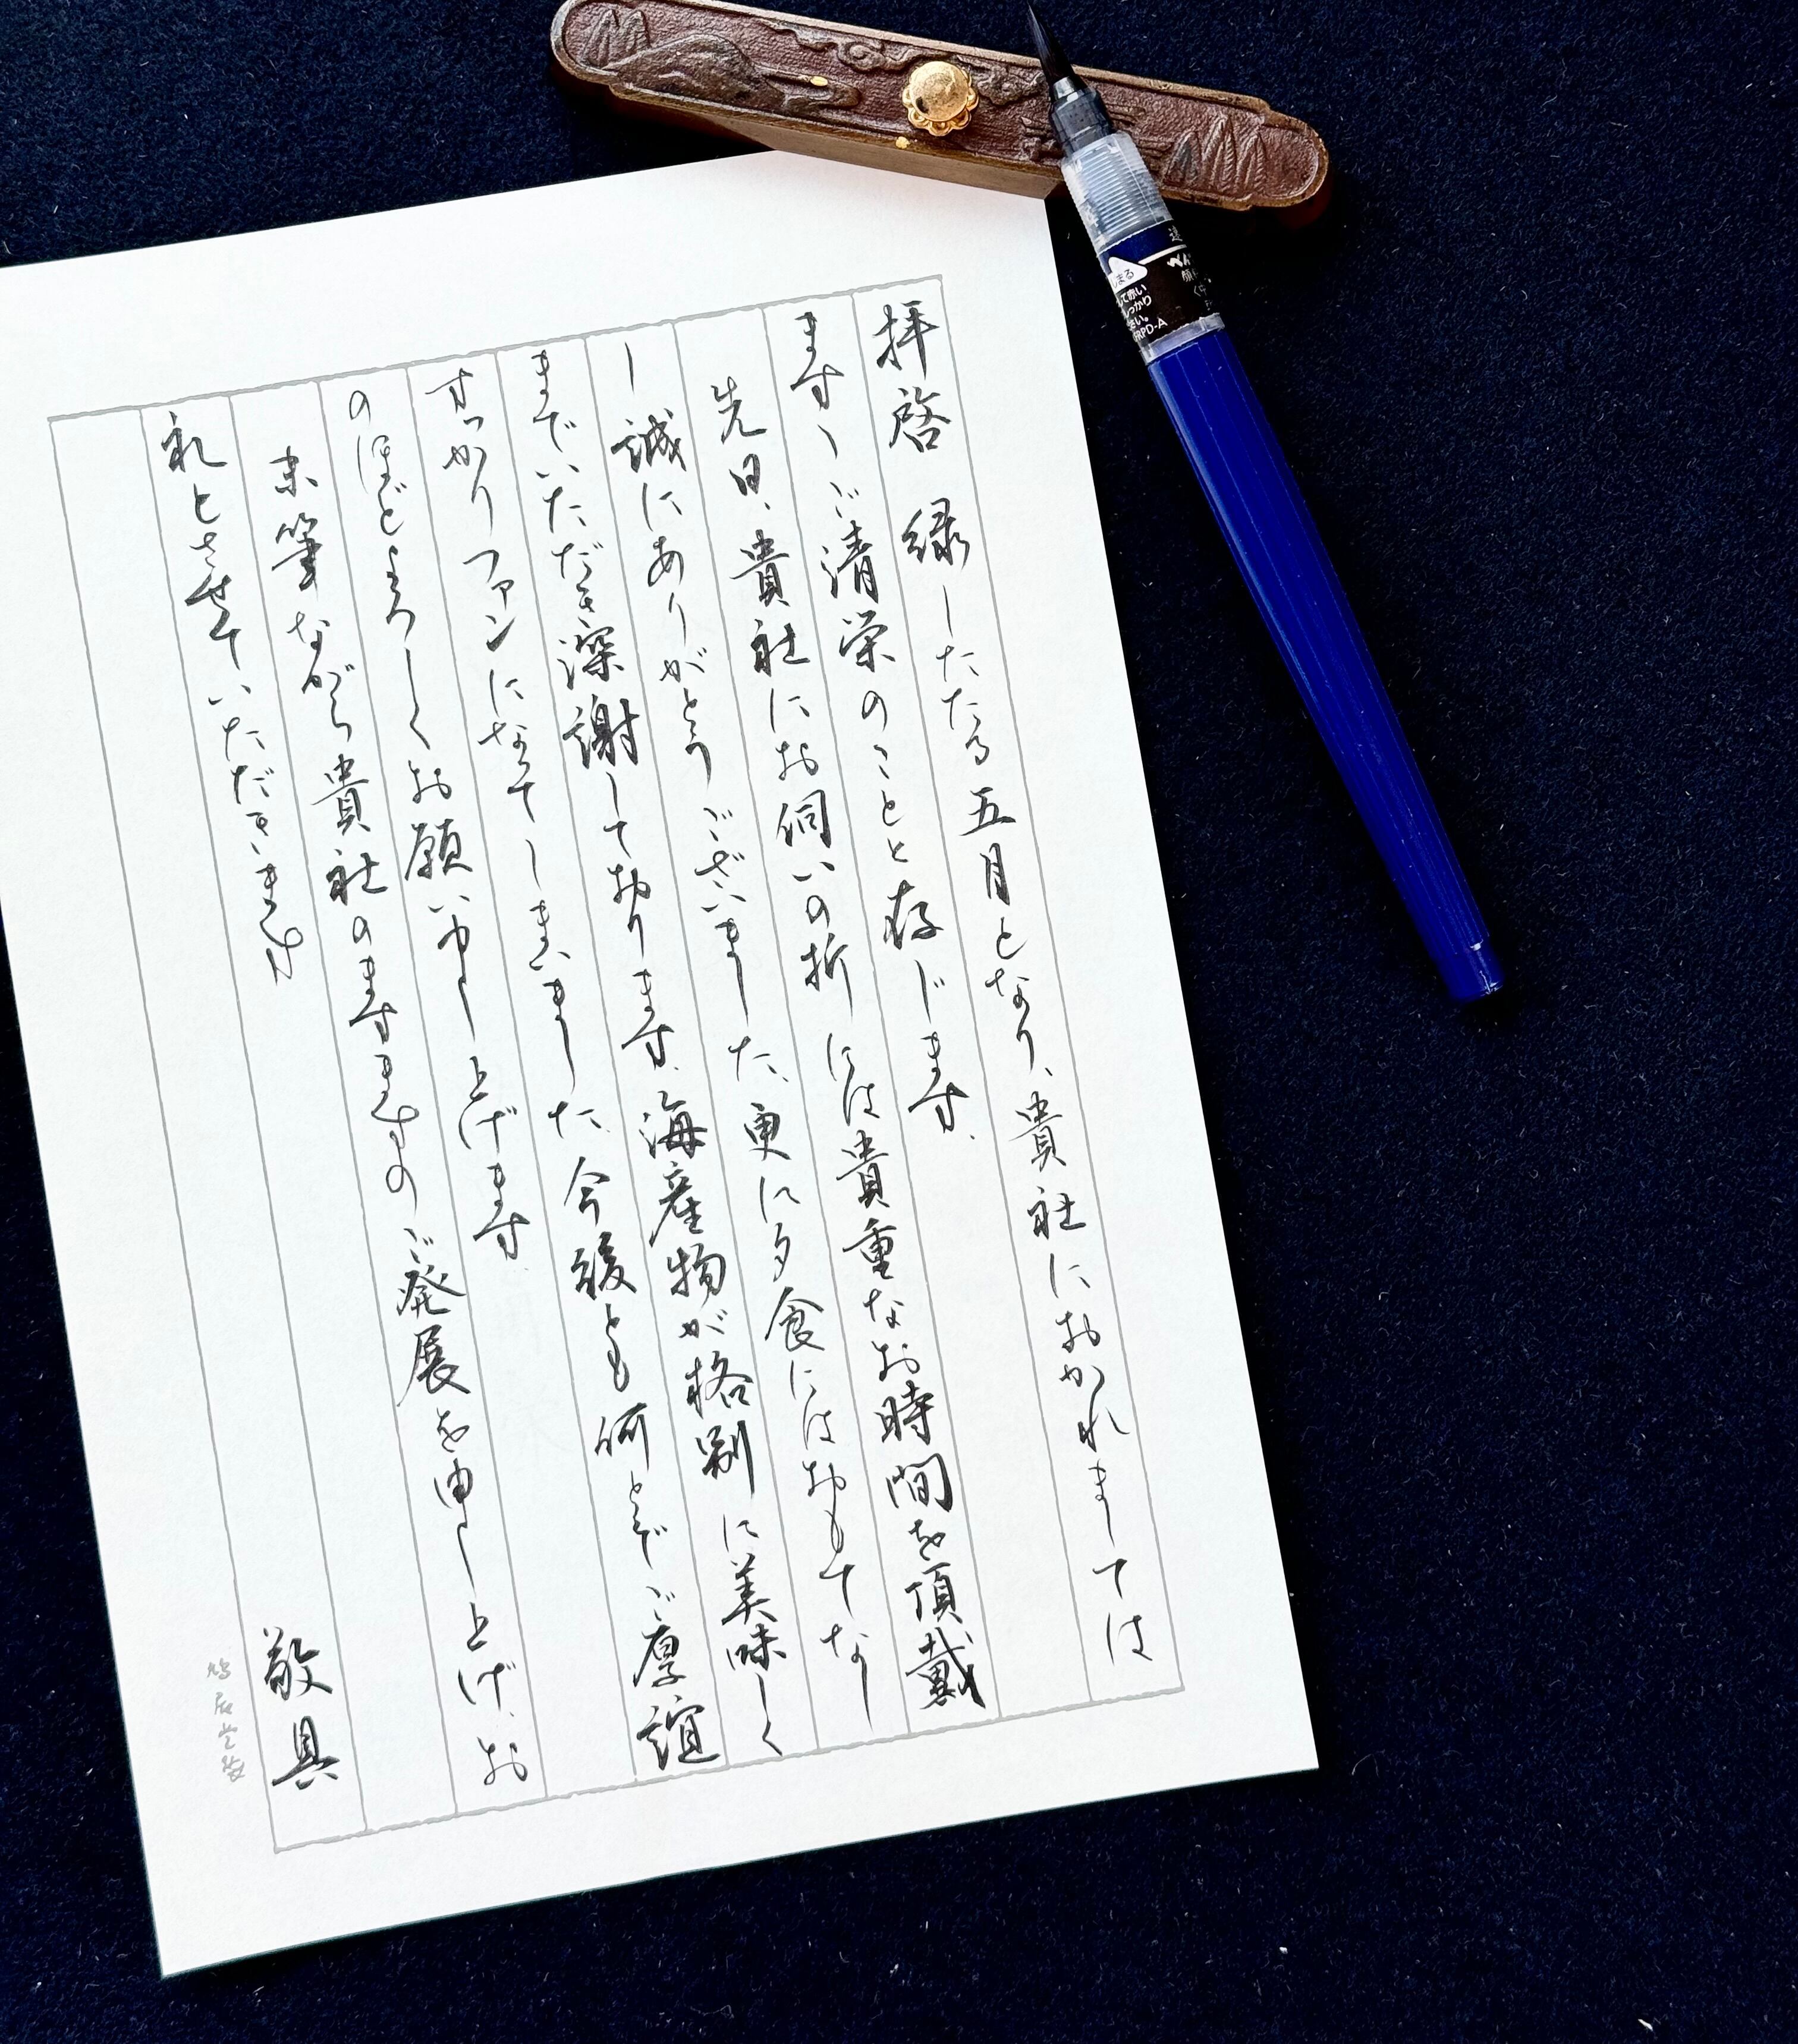 拝啓 緑したたる五月となり、貴社におかれましては
ますゝご清栄のことと存じます、
先日、貴社にお伺いの折には貴重なお時間を頂戴
し誠にありがとうございました、更に夕食にはおもてなし
までいただき深謝しております、海産物が格別に美味しく
すっかりファンになってしまいました、今後とも何とぞご厚誼
のほどよろしくお願い申し上げます、
末筆ながら貴社のますますのご発展を申し上げ、お
礼とさせていただきます
敬具
まる
して赤い
しっかり
さい。
FRPD-A